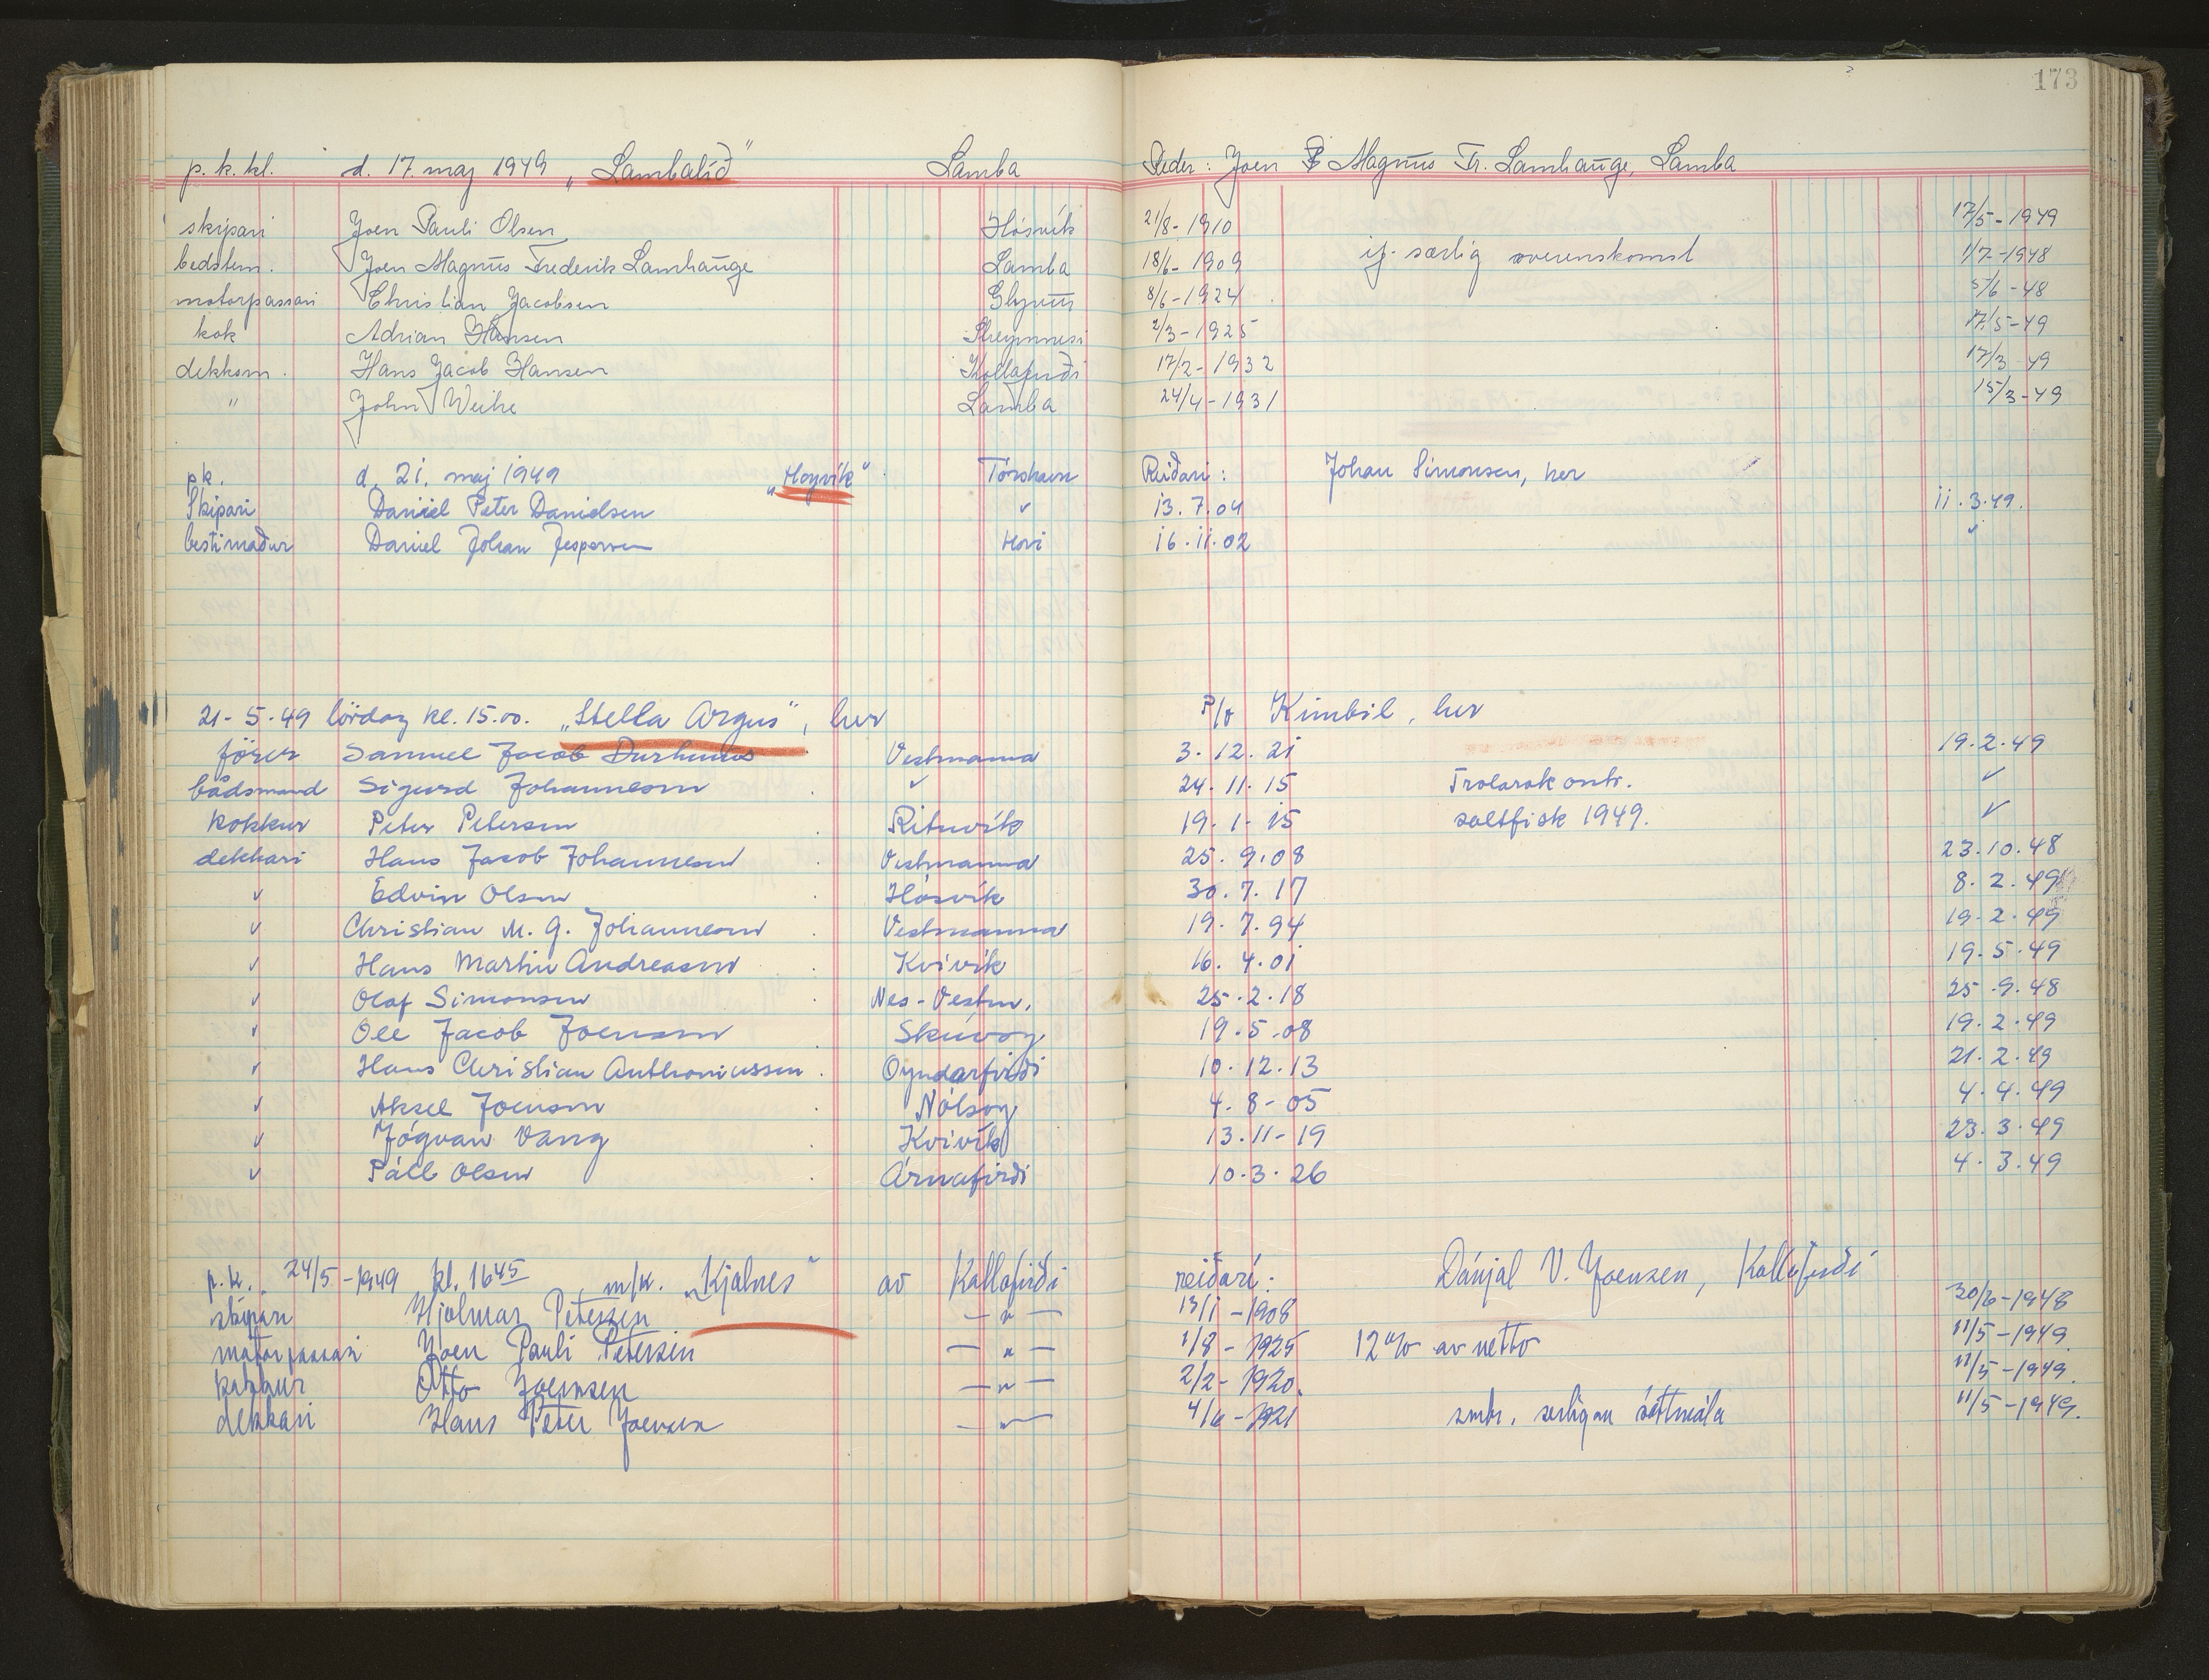 173
p.k.kl. d. 17. maj 1949 „Lambalíð“ Lamba Reder: Joen Magnus Fr. Lamhauge, Lamba
skipari Joen Pauli Olsen Hósvík 21/8-1910 17/5-1949
bedstem. Joen Magnus Frederik Lamhauge Lamba 18/6-1909 if. særlig overenskomst 1/7-1948
motorpassari Christian Jacobsen Glyvur 8/6-1924 5/6-48
kok Adrian Hansen Streymnesi 2/3-1925 17/5-49
dekksm. Hans Jacob Hansen Kollafirði 17/2-1932 17/3-49
" John Weihe Lamba 24/4-1931 15/3-49
p.k. d. 21. maj 1949 „Hoyvík“ Tórshavn Reiðari: Johan Simonsen, her
Skipari Daniel Peter Danielsen ✓ 13.7.04 11.3.49.
bestimaður Daniel Johan Jespersen Hovi 16.11.02 ✓
21-5-49 lördag kl. 15.00. „Stella Argus“, her P/r Kimbil, her
förer Samuel Jacob Durhuus Vestmanna 3.12.21 19.2.49
bådsmand Sigurd Johannesen ✓ 24.11.15 Trolarakontr. ✓
kokkur Peter Petersen Rituvík 19.1.15 saltfisk 1949. ✓
dekkari Hans Jacob Johannesen Vestmanna 25.9.08 23.10.48
✓ Edvin Olsen Hósvík 30.7.17 8.2.49
✓ Christian M. G. Johannesen Vestmanna 19.7.94 19.2.49
✓ Hans Martin Andreasen Kvívík 16.4.01 19.5.49
✓ Olaf Simonsen Nes-Vestm. 25.2.18 25.9.48
✓ Ole Jacob Joensen Skúvoy 19.5.08 19.2.49
✓ Hans Christian Anthoniussen Oyndarfirði 10.12.13 21.2.49
✓ Aksel Joensen Nólsoy 4.8-05 4.4.49
✓ Jógvan Vang Kvívík 13.11-19 23.3.49
✓ Páll Olsen Árnafirði 10.3.26 4.3.49
p.k. 24/5-1949 kl. 16 45 m/k. „Kjalnes“ av Kollafirði reiðari: Dánjal V. Joensen, Kollafirði
skipari Hjalmar Petersen —"— 13/1-1908 30/6-1948
motorpassari Joen Pauli Petersen —"— 1/8-1925 12% av netto 11/5-1949.
kokkur Otto Joensen —"— 2/2-1920. 11/5-1949.
dekkari Hans Peter Joensen —"— 4/6-1921 smb. serligan sáttmála 11/5-1949.